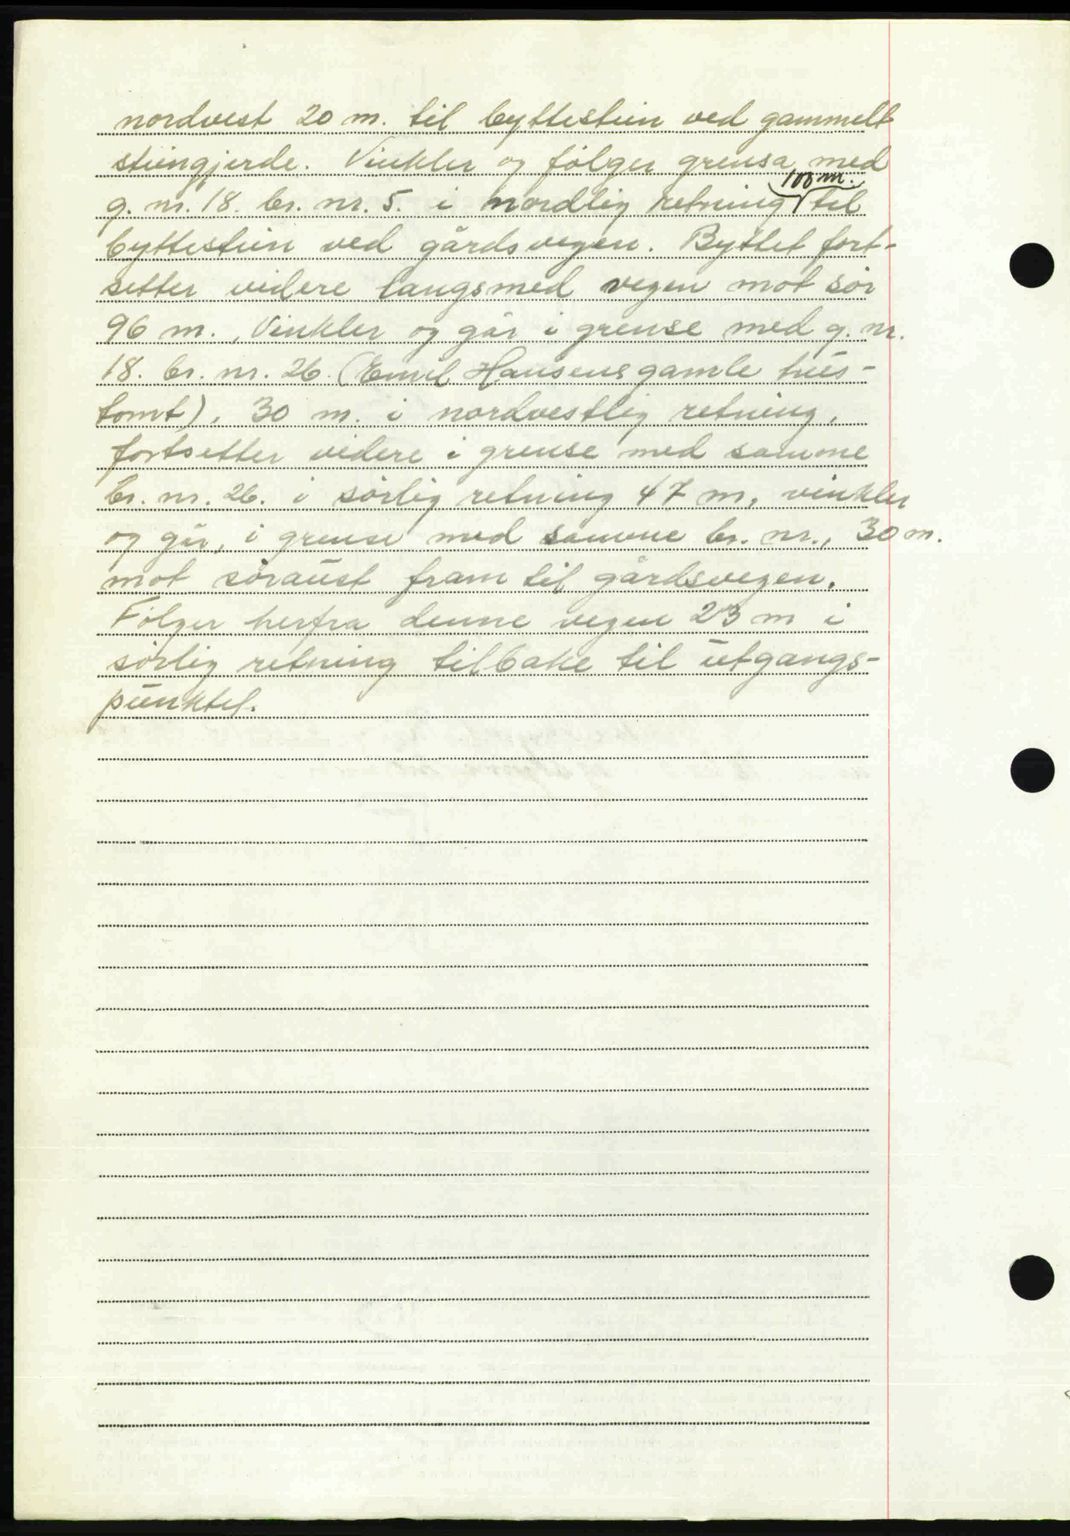 nordvest 20 m. til byttestein ved gammelt
steingjerde. Vinkler og følger grensa med
g. nr. 18. br. nr. 5. i nordlig retning 100 m. til
byttestein ved gårdsvegen. Byttet fort-
setter videre langsmed vegen mot sør
96 m., Vinkler og går i grense med g. nr.
18. br. nr. 26. (Emil Hansens gamle hus-
tomt), 30 m. i nordvestlig retning,
fortsetter videre i grense med samme
br. nr. 26. i sørlig retning 47 m, vinkler
og går, i grense med samme br. nr., 30 m.
mot søraust fram til gårdsvegen.
Følger herfra denne vegen 23 m i
sørlig retning tilbake til utgangs-
punktet.